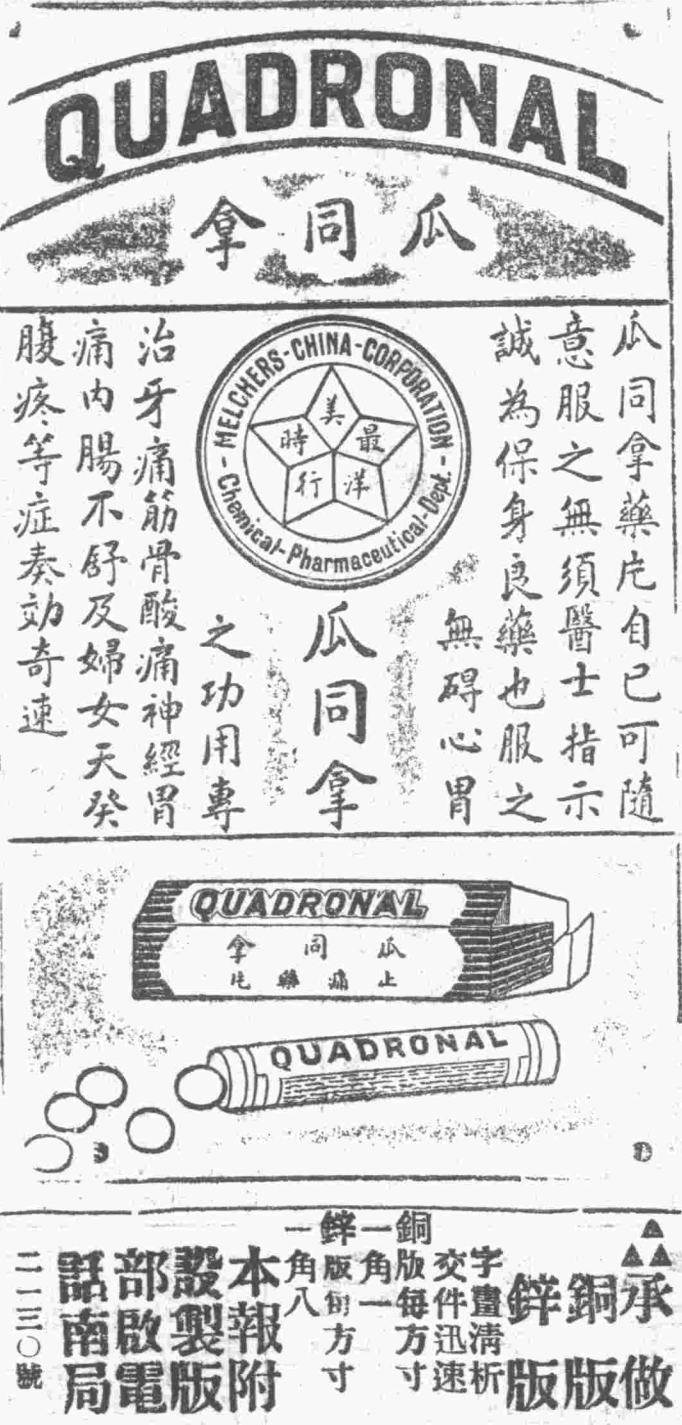 QUADRONAL
瓜同拿
瓜同拿藥片自己可隨
意服之無須醫士指示
誠為保身良藥也服之
無碍心胃
MELCHERS-CHINA-CORPORATION
Chemical-Pharmaceutical-Dept.
美最時洋行
瓜同拿
之功用專
治牙痛筋骨酸痛神經胃
痛內腸不舒及婦女天癸
腹疼等症奏効奇速
QUADRONAL
瓜同拿
止痛藥片
QUADRONAL
承做
銅版
鋅版
字畫清析
交件迅速
銅版每方寸
一角一
鋅版旬方寸
一角八
本報附
設製版
部啟電
話南局
二一三〇號